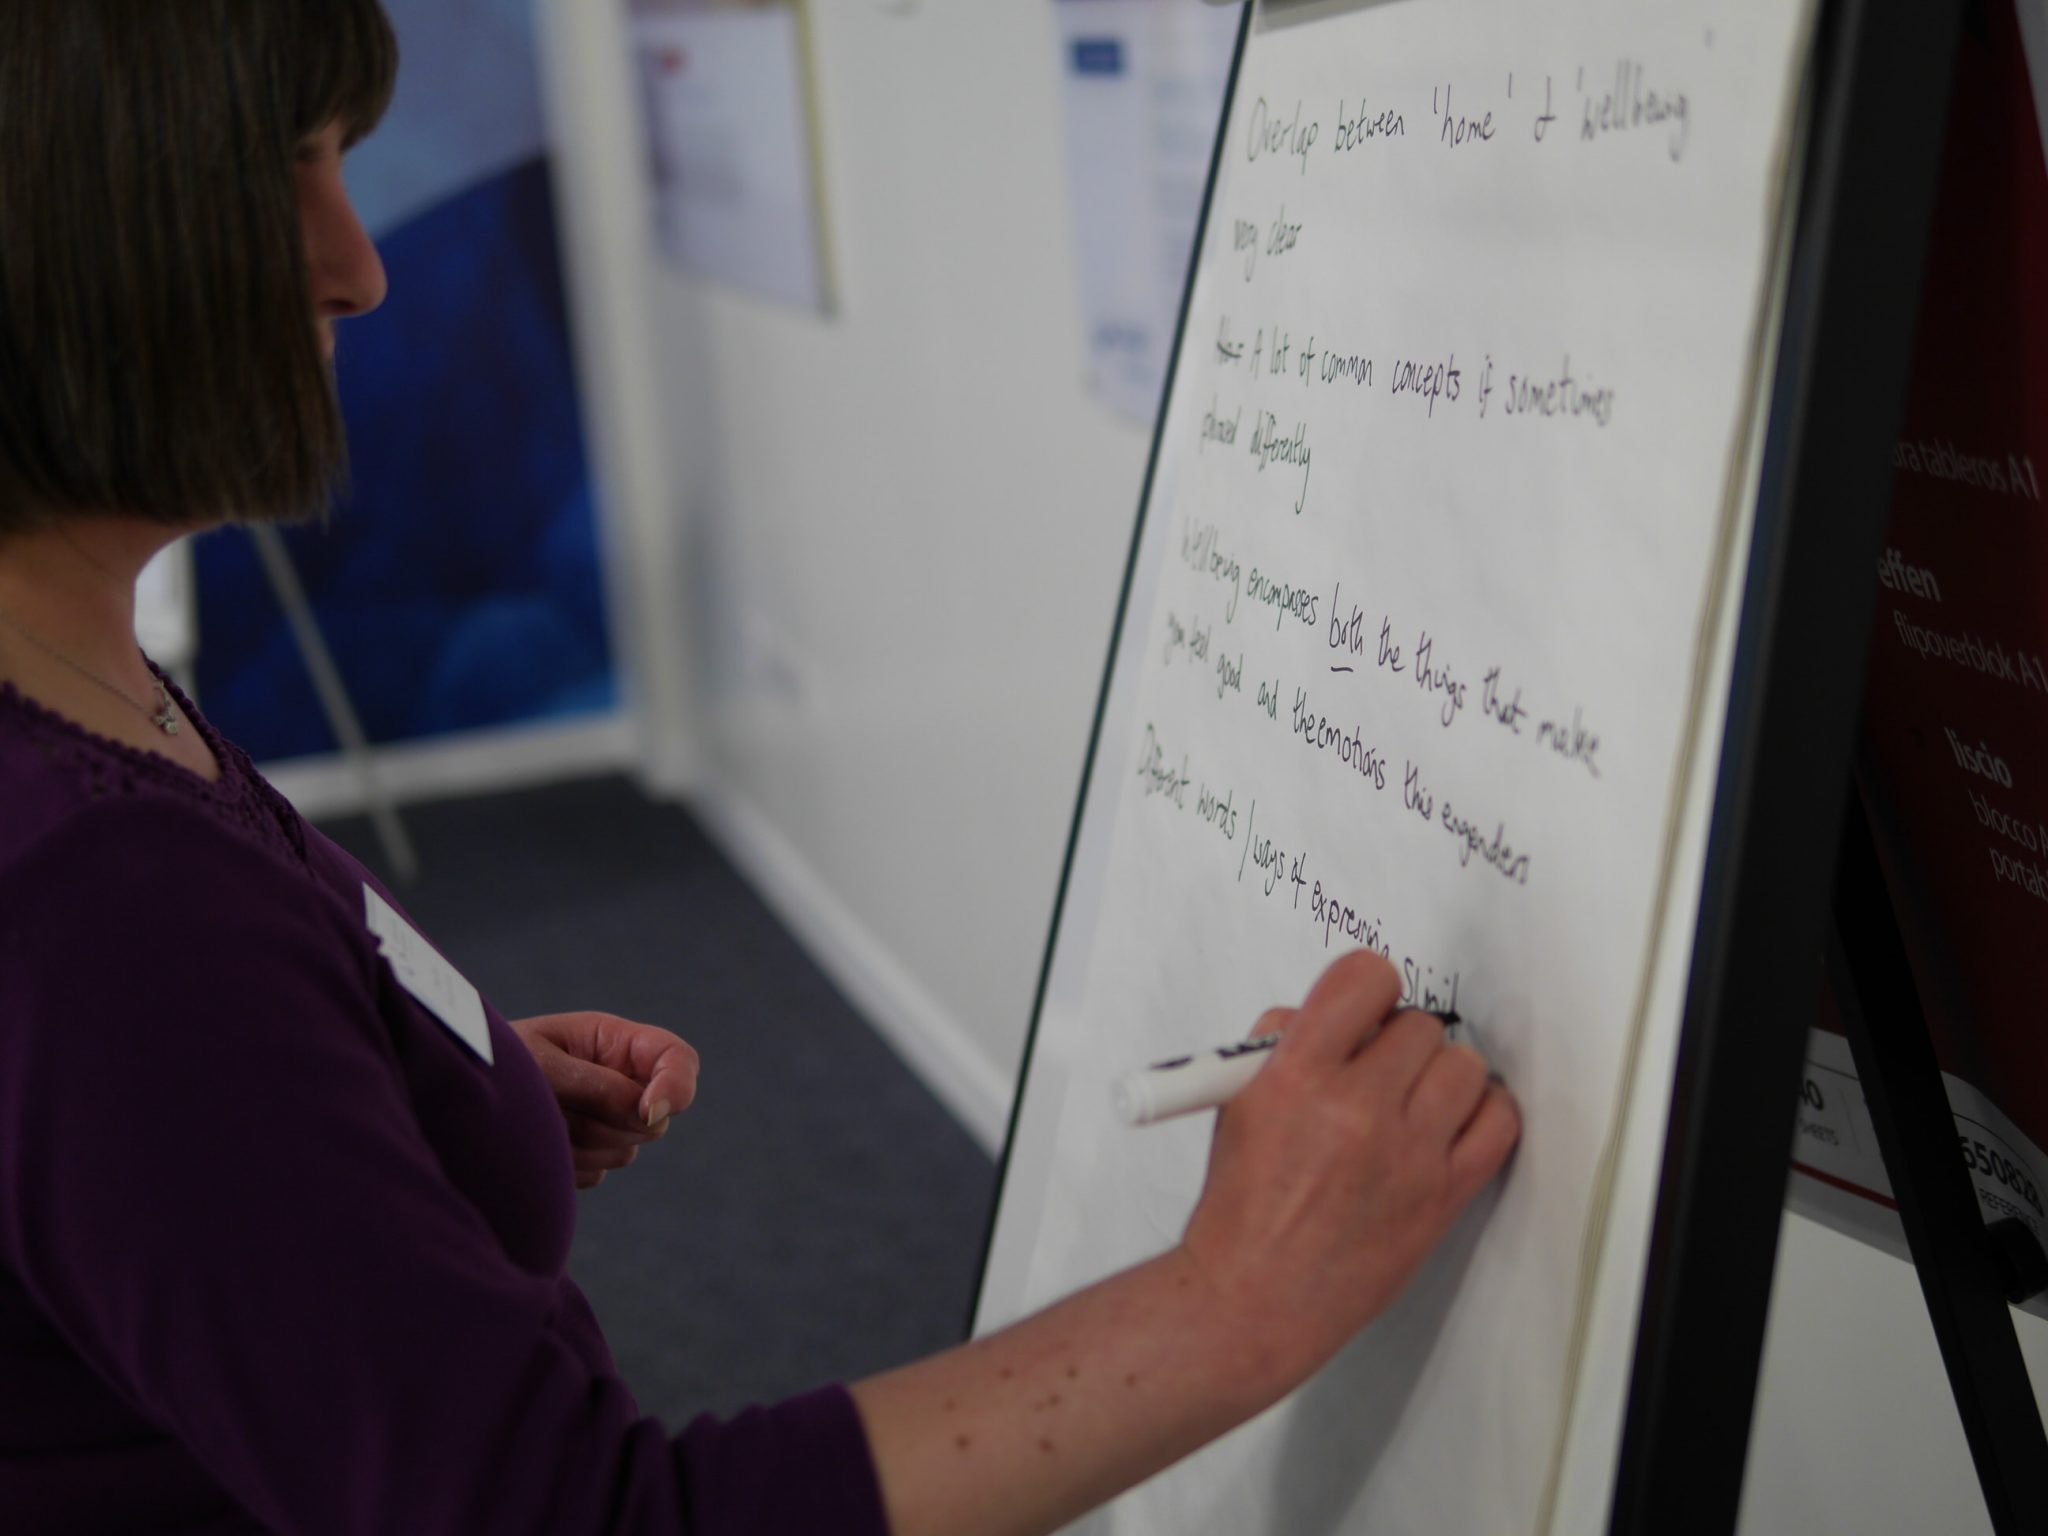 Overlap between 'home' & 'wellbeing'
very clear
A lot of common concepts if sometimes
phrased differently
Wellbeing encompasses both the things that make
you feel good and the emotions this engenders
Different words / ways of expressing simil
ara tableros A1
effen
flipoverblok A1
liscio
blocco A
portab
40
SHEETS
650828
REFERENCE